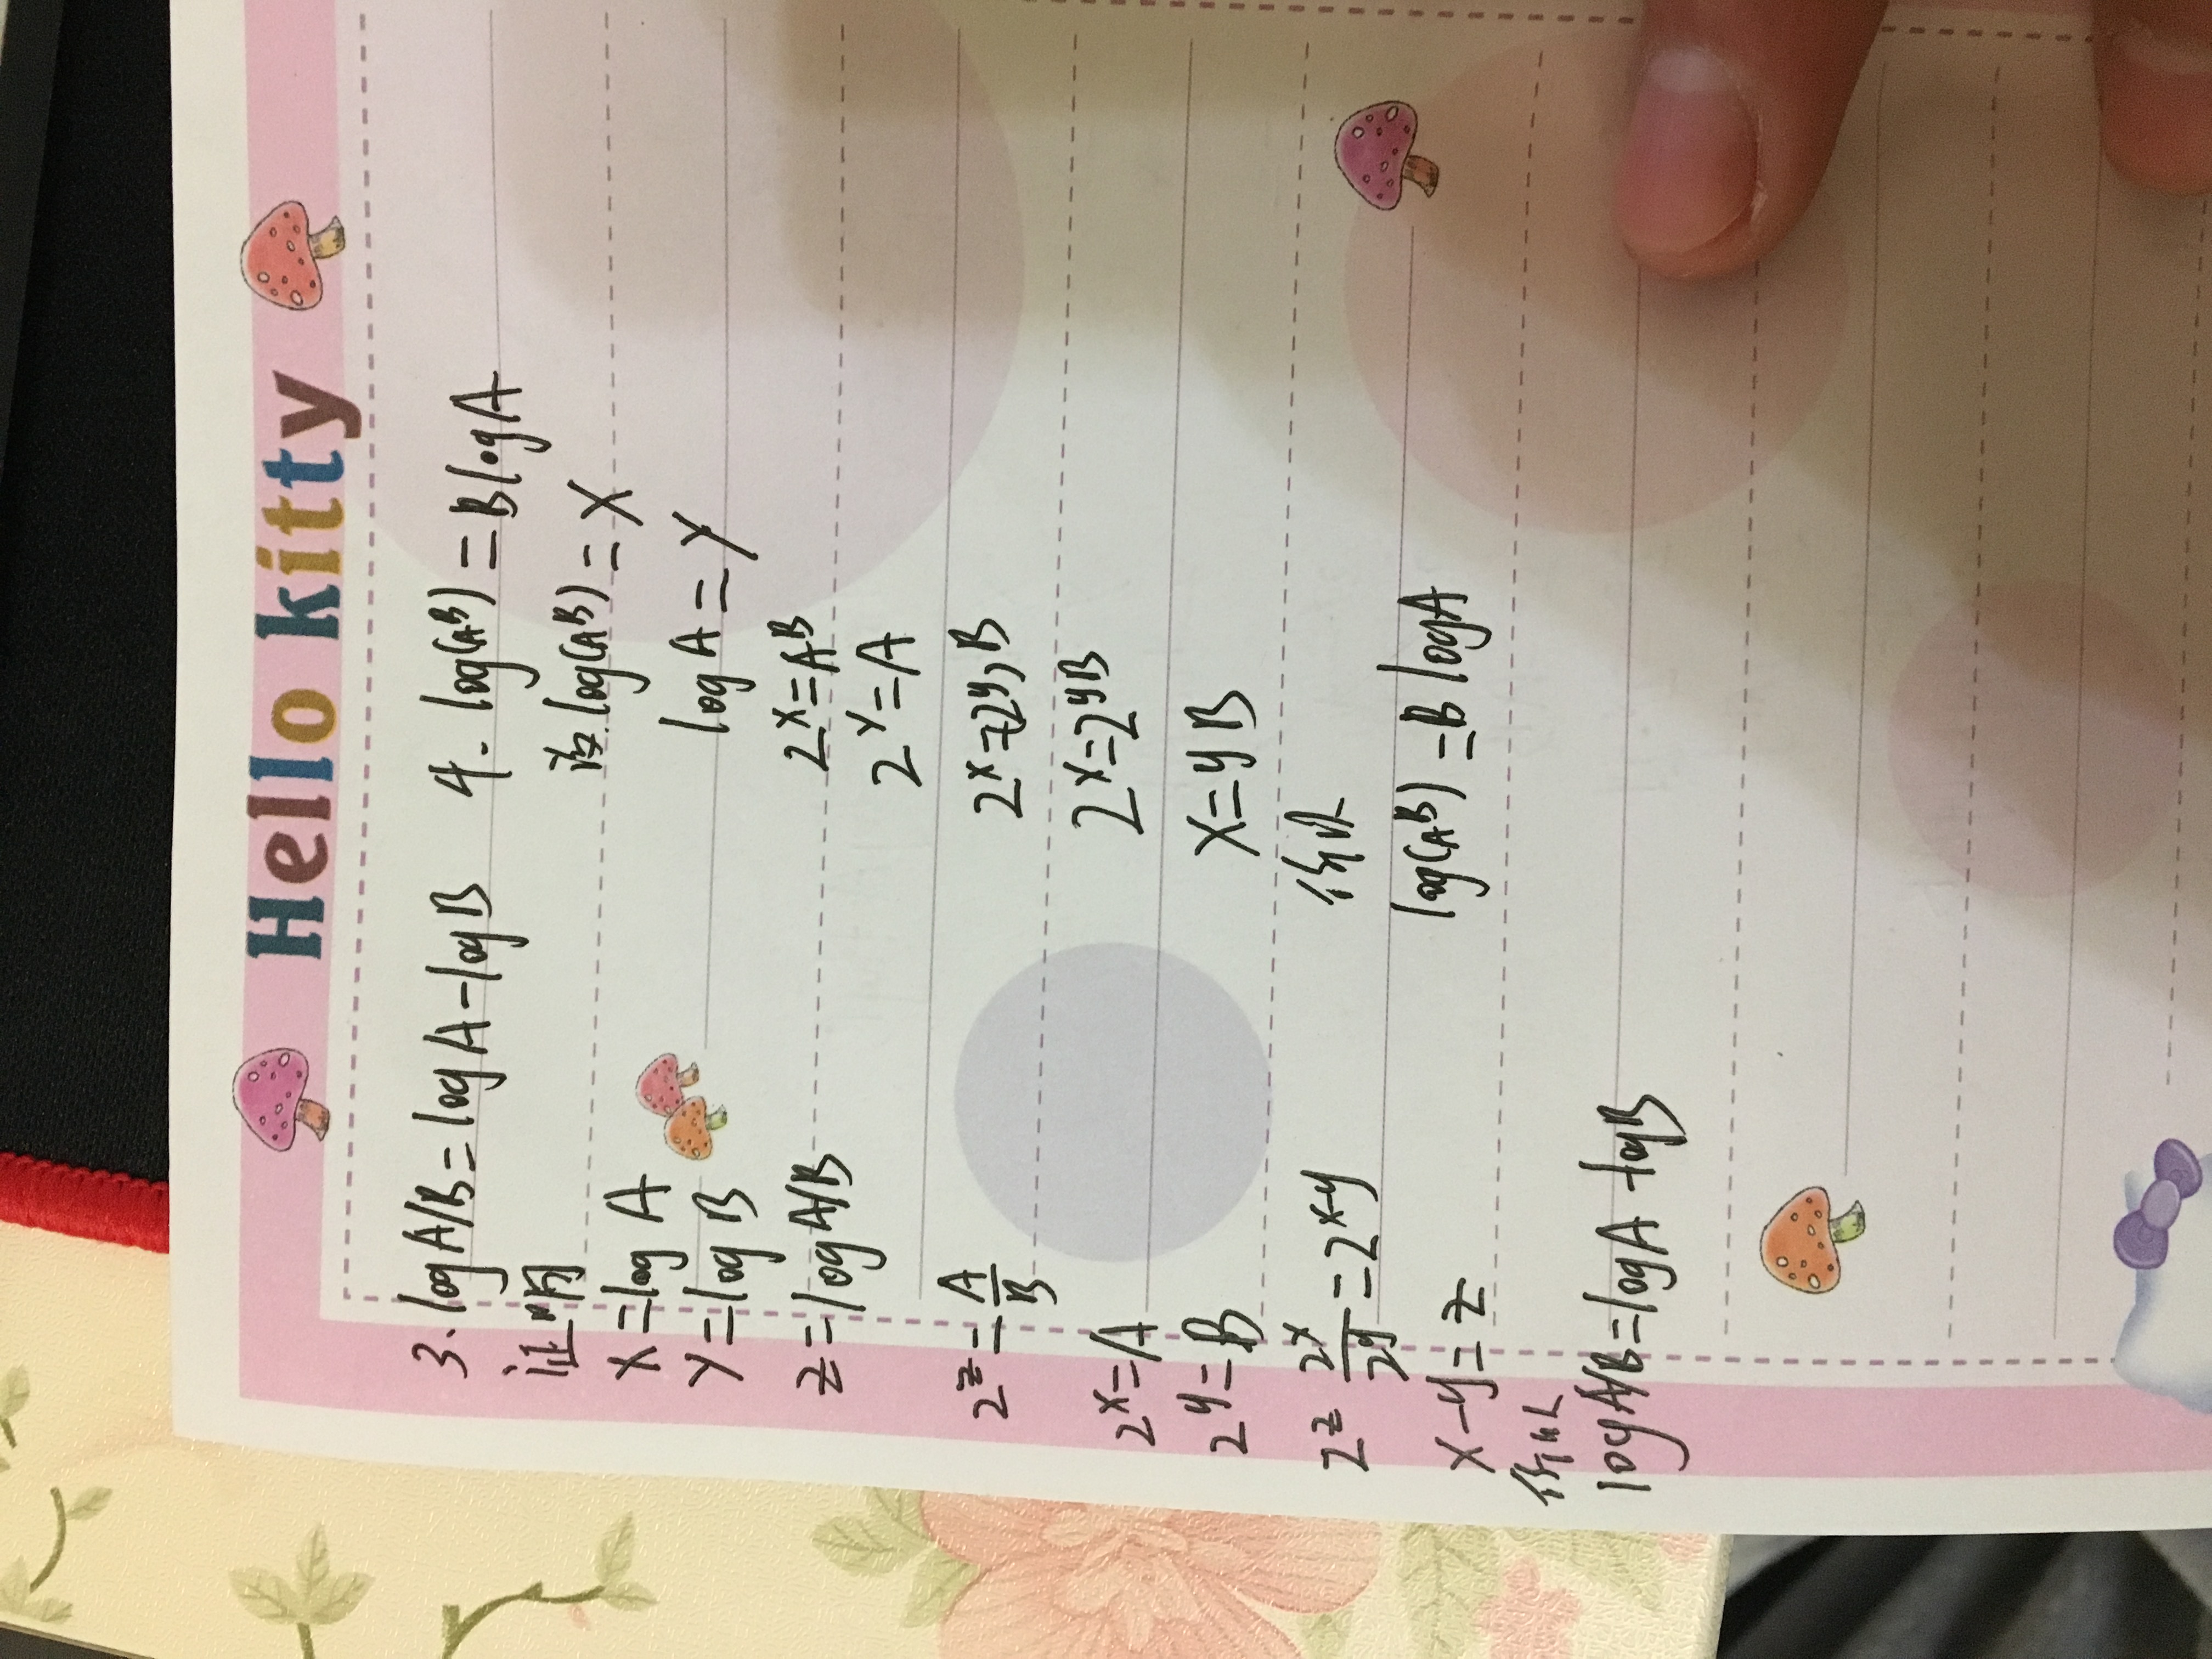 Hello kitty
3. log A/B = log A - log B
证明
X = log A
Y = log B
Z = log A/B
2^Z = A/B
2^X = A
2^y = B
2^Z 2^X/2^y = 2^x-y
X - y = Z
所以
log A/B = log A - log B
4. log(A^B) = B log A
设 log(A^B) = X
log A = Y
2^X = A^B
2^Y = A
2^X = (2^y)^B
2^X = 2^yB
X = y B
所以
log(A^B) = B log A